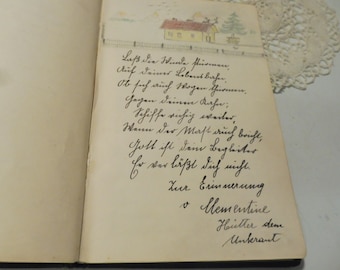 Laß die Winde stürmen
Auf deiner Lebensbahn,
Ob sich auch Wogen türmen
Gegen deinen Kahn;
Schiffe ruhig weiter,
Wenn der Mast auch bricht,
Gott ist dein Begleiter
Er verläßt dich nicht.
Zur Erinnerung
v Clementine
dem
Unkraut